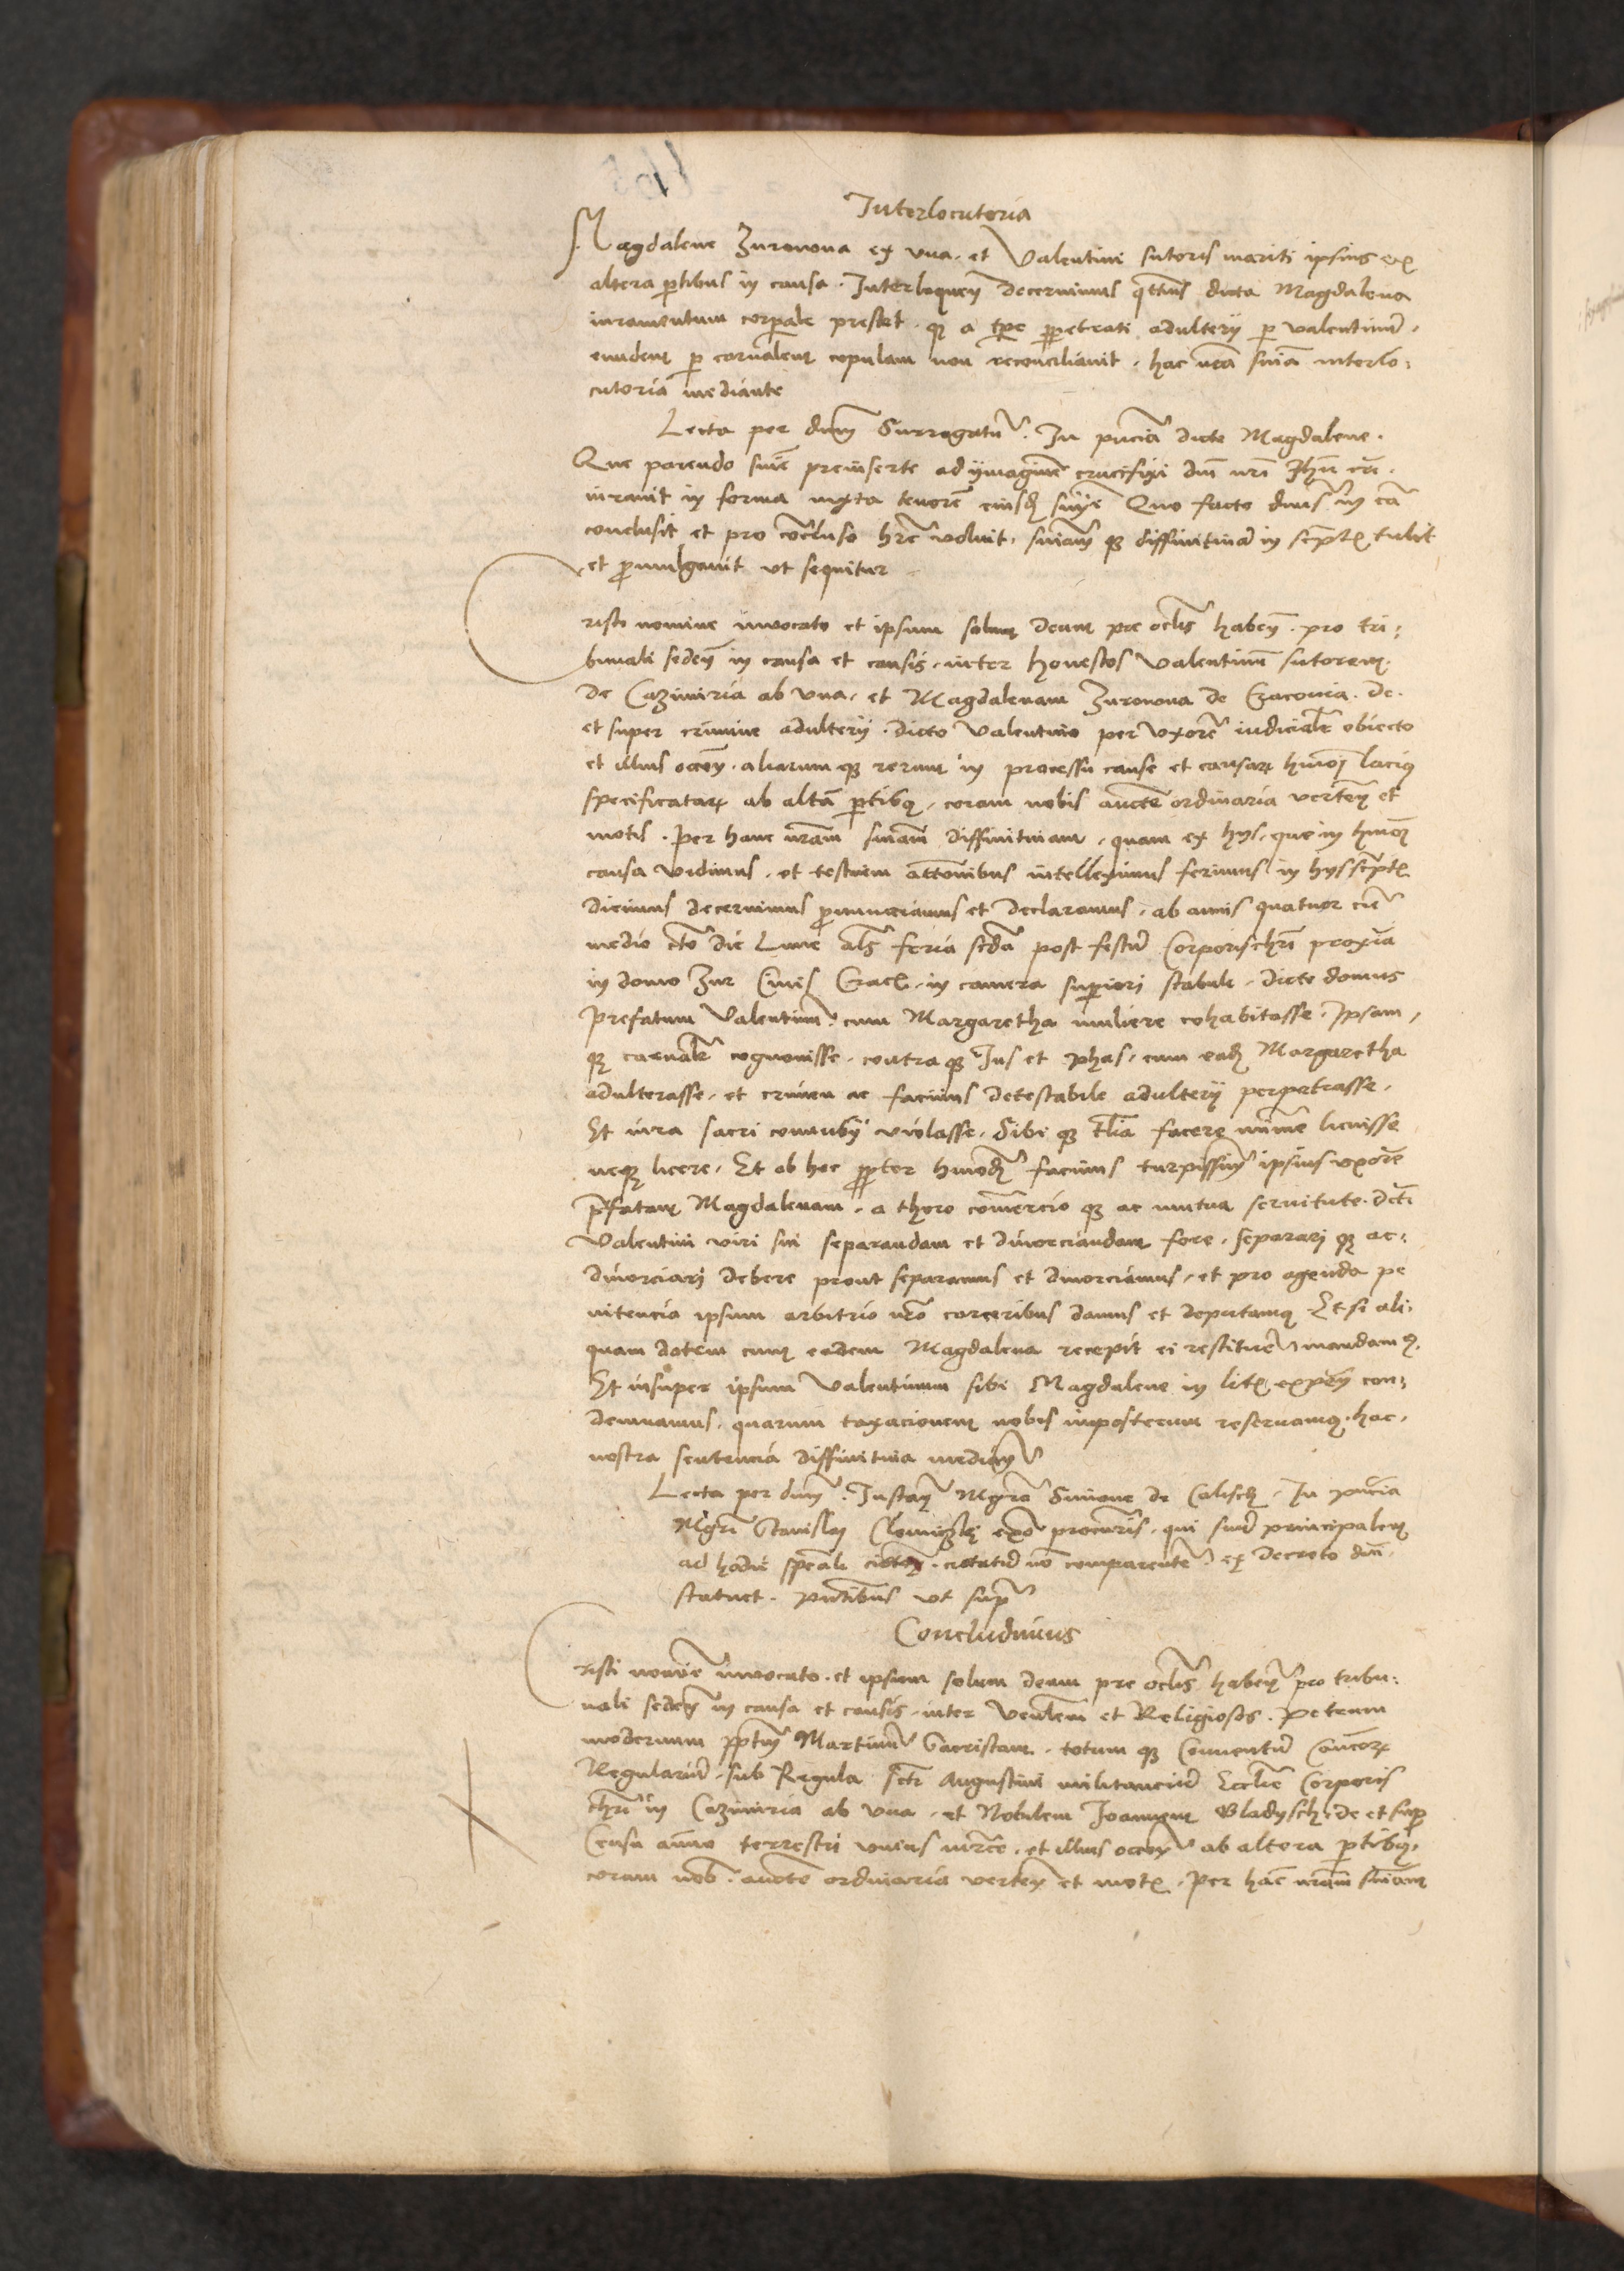 Interlocutoria
Magdalene Zurowna ex vna et Valentini sutoris mariti ipsius ex
altera ptibus in causa Interloquen decernimus qttus dicta Magdalena
iuramentum corporale prestet q a tpe ppetrati adulterij p valentinu
eundem p carnalem copulam non reconciliauit hac nra snia interlo:
cutoria mediante
Lecta per dnm Surrogatu. In pncia dicte Magdalene.
Que parendo snie preinserte ad ymagine crucifixi dni nri Jhu cri
iurauit in forma iuxta tenore eiusd snie Quo facto dnus in ca
conclusit et pro concluso hre voluit. sniam q diffinitiua in script tulit
et promulgauit vt sequitur
risti nomine inuocato et ipsum solum deum pre oclis haben. pro tri:
bunali seden in causa et causis inter honestos Valentinu sutorem
de Cazimiria ab vna et Magdalenam Zurowna de Cracouia. de
et super crimine adulterij dicto Valentino per vxore iudicialr obiecto
et illius occon. aliarum q rerum in processu cause et causar hmoi lacius
specificatar ab alta ptibus coram nobis aucte ordinaria verten et
motis. Per hanc nram sniam diffinitiuam quam ex hys que in hmoi
causa vidimus et testium attonibus intelleximus ferimus in hys script
dicimus decernimus pronunciamus et declaramus ab annis quatuor cu
medio cto die Lune als feria scda post festu Corporis chri proxia
in domo Zur Ciuis Crac. in camera superiori stabule dicte domus
Prefatum Valentinu cum Margaretha muliere cohabitasse Ipsam
q carnalr cognouisse contra q Ius et phas cum ead Margaretha
adulterasse et crimen ac facinus detestabile adulterij perpetrasse
Et iura sacri connubij violasse Sibi q tlia facere minime licuisse
neq licere. Et ob hoc ppter hmodi facinus turpissimu ipsius vxore
pfatam Magdalenam a thoro comercio q ac mutua seruitute dcti
Valentini viri sui separandam et diuorciandam fore separari q ac:
diuorciari debere prout separamus et diuorciamus et pro agenda pe
nitencia ipsum arbitrio nro carceribus damus et deputamus Et si ali:
quam dotem cum eadem Magdalena recepit ei restituere mandamus
Et insuper ipsum Valentinum sibi Magdalene in lit expen con:
demnamus quarum taxacionem nobis imposterum reseruamus hac
nostra sentencia diffinitiua median
Lecta per dnm Instan Mgro Simone de Calisch In pncia
Mgri Stanislai procuris qui suu principalem
ad hodie spealr citatu no comparente ex decreto dni
statuet. pntibus vt supra
Concludimus
risti nomine inuocato et ipsum solum deum pre oclis haben pro tribu:
nali seden in causa et causis inter Venlem et Religiosos. Petrum
modernum pptum Martinu Sacristam totum q Conuentu Cancor
Regulariu sub Regula scti Augustini militanciu Ecclie Corporis
chri in Cazimiria ab vna et Nobilem Joannem Gladysch de et super
Censu annuo terrestri vnius mrce et illius occon ab altera ptibus
coram nob aucte ordinaria verten et mot. Per hac nram sniam